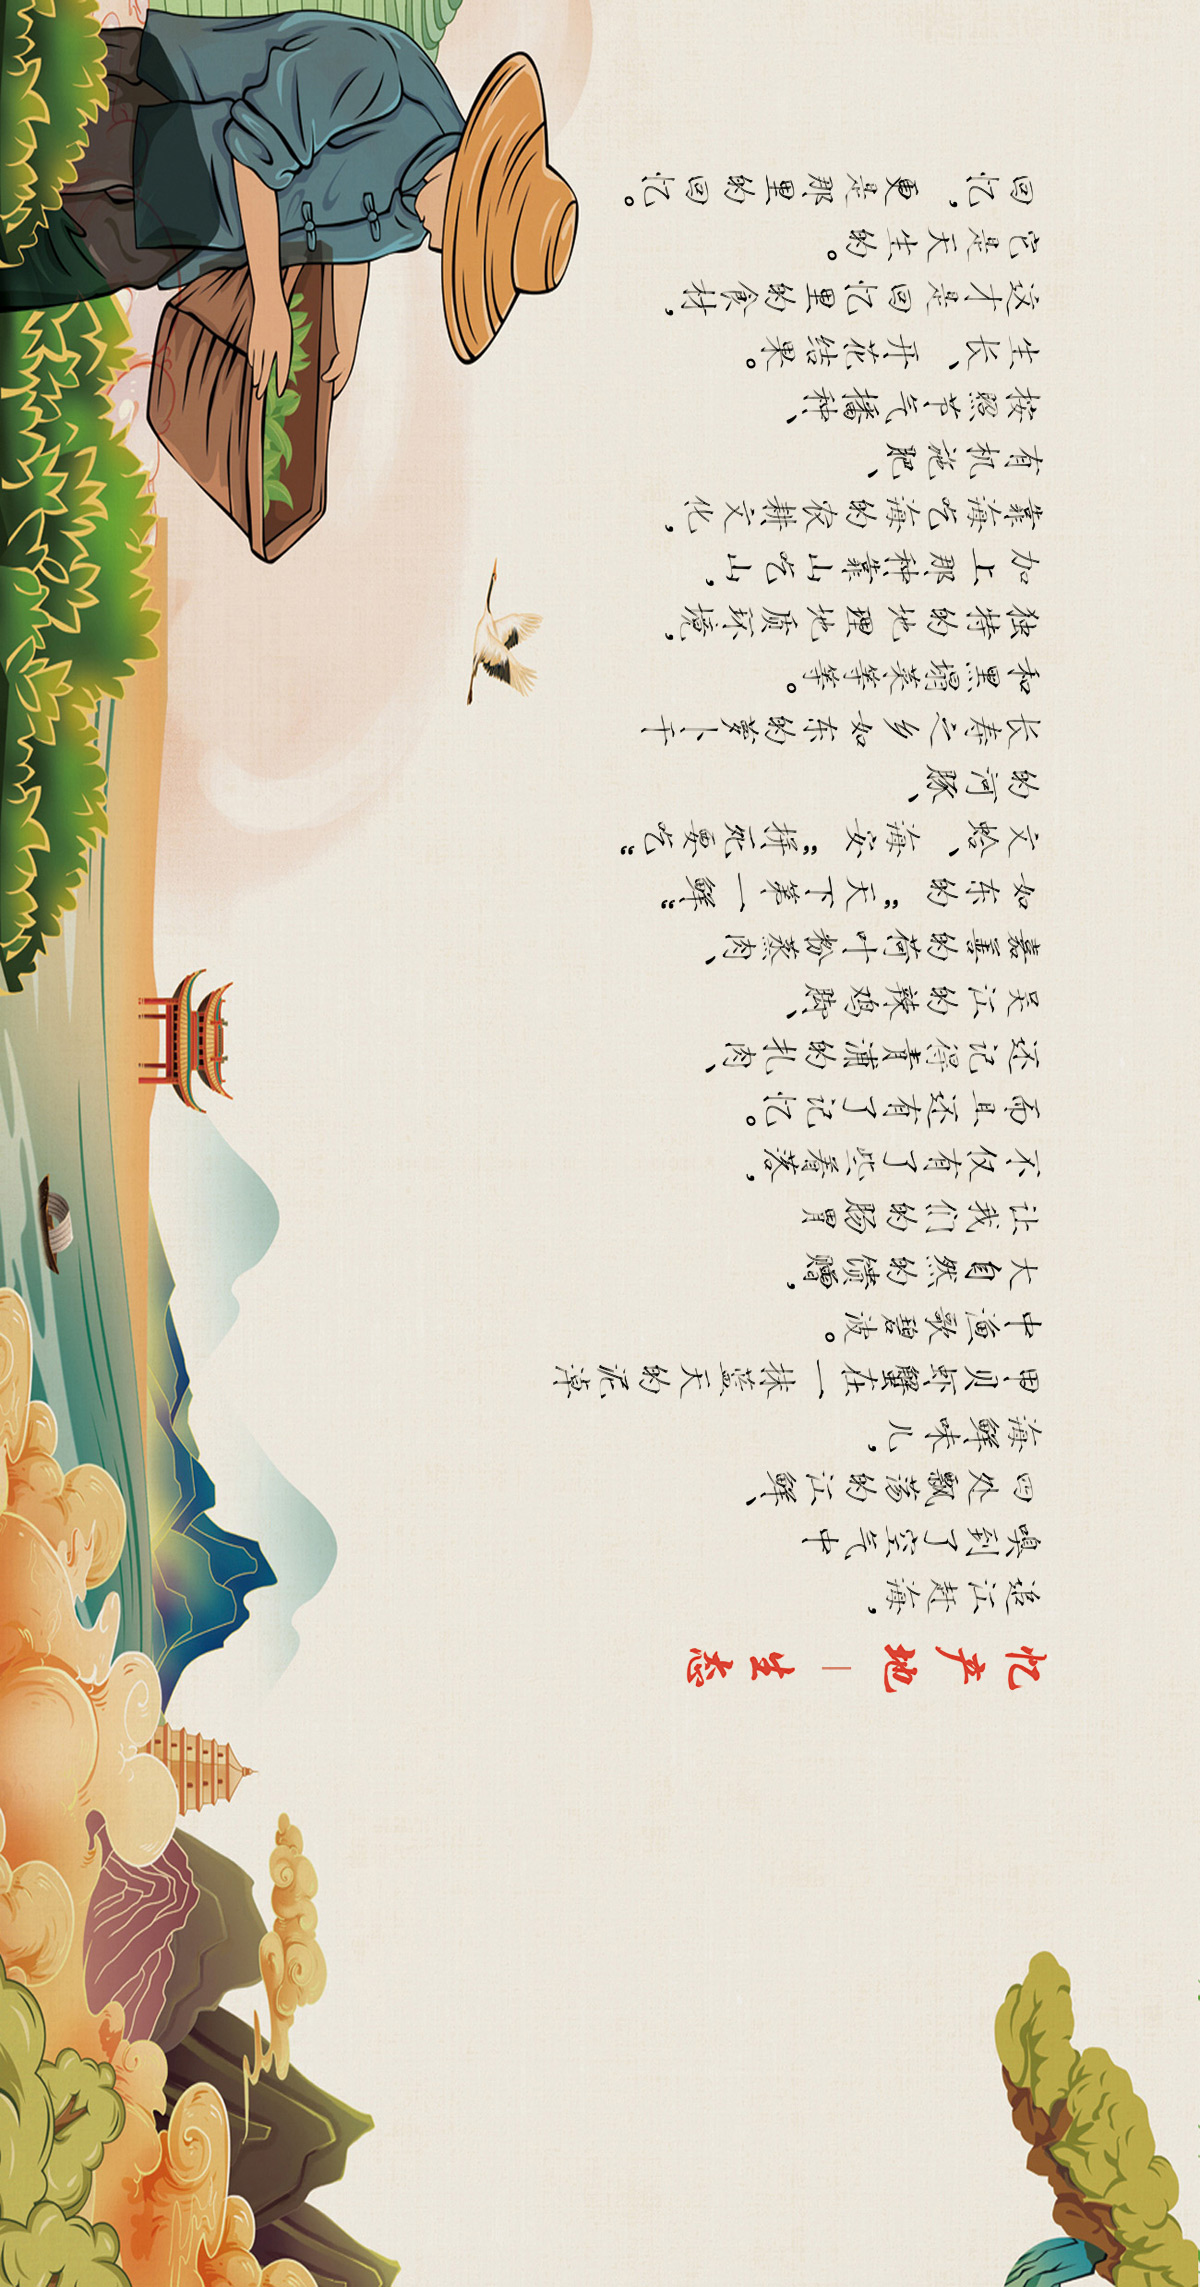 忆产地｜生态
追江赶海，
嗅到了空气中
四处飘荡的江鲜、
海鲜味儿，
甲贝虾蟹在一抹蓝天的泥淖
中渔歌碧波。
大自然的馈赠，
让我们的肠胃
不仅有了些着落，
而且还有了记忆。
还记得青浦的扎肉、
吴江的辣鸡脚、
嘉善的荷叶粉蒸肉、
如东的“天下第一鲜”
文蛤、海安“拼死要吃”
的河豚、
长寿之乡如东的萝卜干
和黑塌菜等等。
独特的地理地质环境，
加上那种靠山吃山，
靠海吃海的农耕文化，
有机施肥、
按照节气播种、
生长、开花结果。
这才是回忆里的食材，
它是天生的。
回忆，更是那里的回忆。